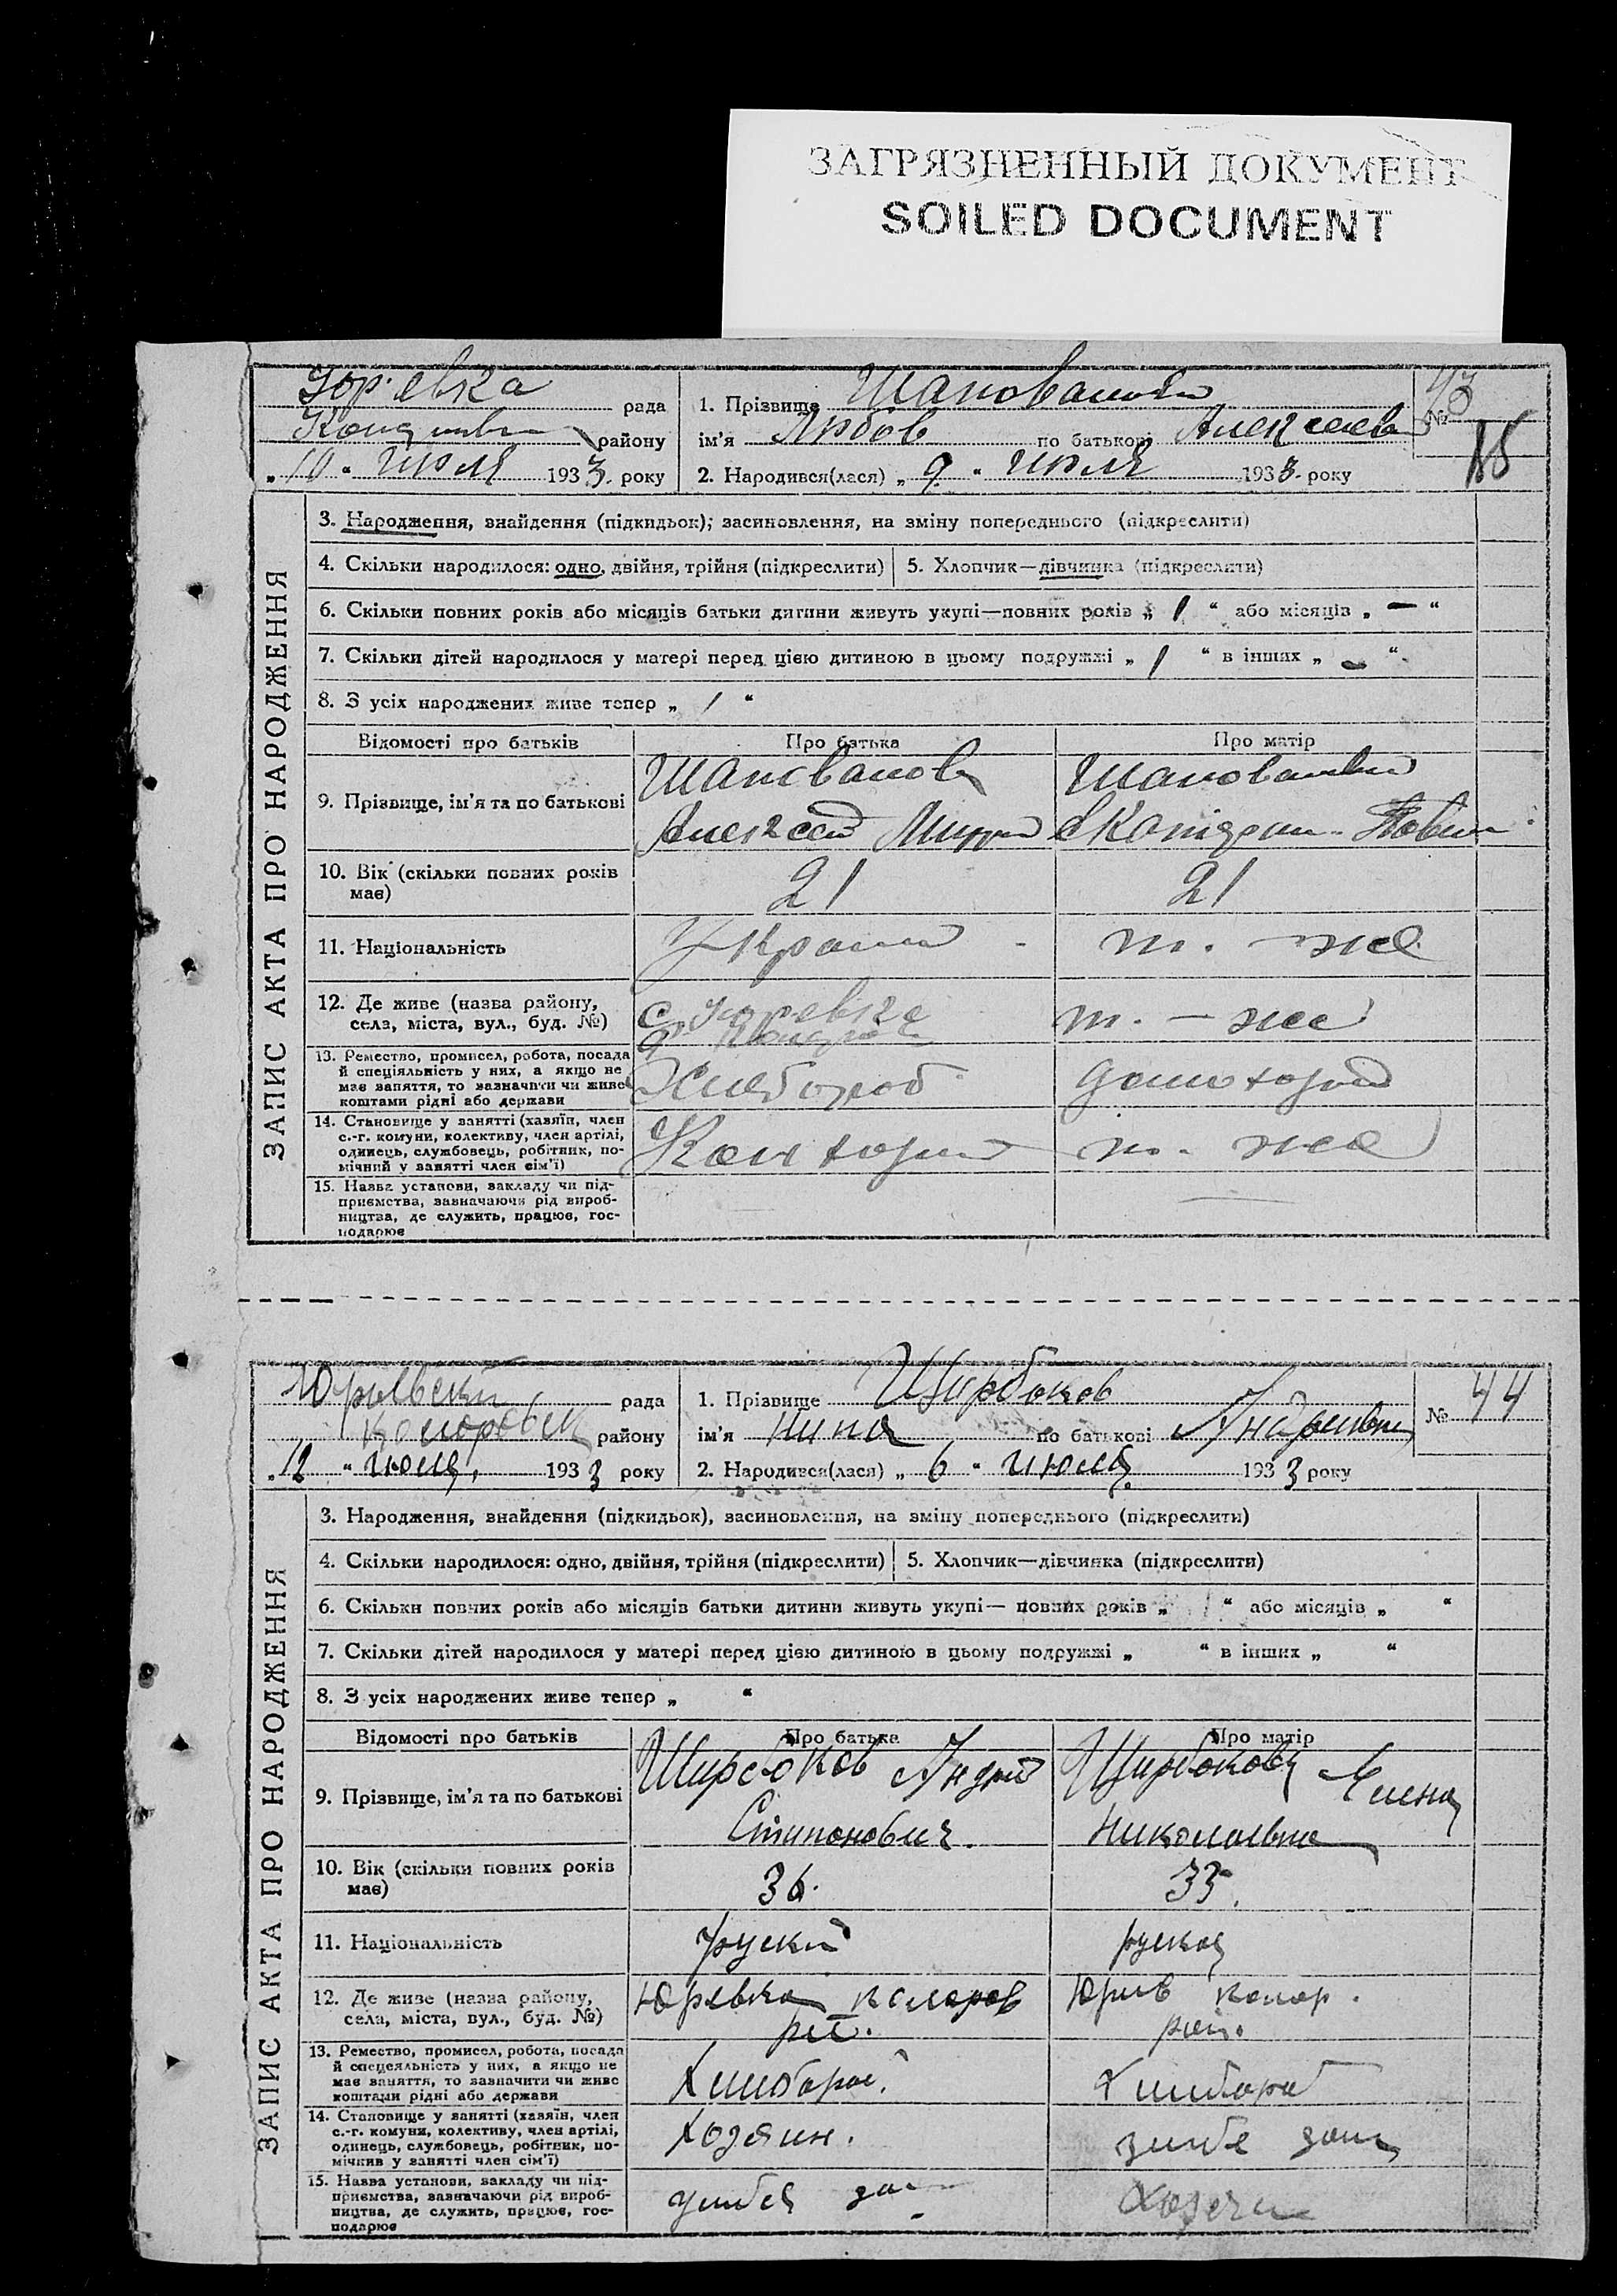 ЗАГРЯЗНЕННЫЙ ДОКУМЕНТ
SOILED DOCUMENT
ЗАПИС АКТА ПРО НАРОДЖЕННЯ
рада
району
„ 10 “ июля 1933. року
1. Прізвище
ім'я Любов по батькові Алексеев
2. Народився(лася) „ 9 “ июля 1933. року
43
№
3. Народження, знайдення (підкидьок); засиновлення, на зміну попереднього (підкреслити)
4. Скільки народилося: одно, двійня, трійня (підкреслити)
5. Хлопчик—дівчинка (підкреслити)
6. Скільки повних років або місяців батьки дитини живуть укупі—повних років „ 1 “ або місяців „ — “
7. Скільки дітей народилося у матері перед цією дитиною в цьому подружжі „ 1 “ в інших „ — “
8. З усіх народжених живе тепер „ 1 “
Відомості про батьків
Про батька
Про матір
9. Прізвище, ім'я та по батькові
Шаповалов
Алексей
10. Вік (скільки повних років
має)
21
21
11. Національність
т. же
12. Де живе (назва району,
села, міста, вул., буд. №)
т. — же
13. Ремество, промисел, робота, посада
й спеціяльність у них, а якщо не
має заняття, то зазначити чи живе
коштами рідні або держави
Хлебороб
14. Становище у занятті (хазяїн, член
с.-г. комуни, колективу, член артілі,
одинець, службовець, робітник, по-
мічний у занятті член сім'ї)
т. же
15. Назва установи, закладу чи під-
приємства, зазначаючи рід вироб-
ництва, де служить, працює, гос-
подарює
ЗАПИС АКТА ПРО НАРОДЖЕННЯ
рада
району
„ 12 “ июля, 1933 року
1. Прізвище Щирбоков
ім'я Нина по батькові
2. Народився(лася) „ 6 “ июля 1933 року
№ 44
3. Народження, знайдення (підкидьок), засиновлення, на зміну попереднього (підкреслити)
4. Скільки народилося: одно, двійня, трійня (підкреслити)
5. Хлопчик—дівчинка (підкреслити)
6. Скільки повних років або місяців батьки дитини живуть укупі— повних років „ “ або місяців „ “
7. Скільки дітей народилося у матері перед цією дитиною в цьому подружжі „ “ в інших „ “
8. З усіх народжених живе тепер „ “
Відомості про батьків
Про батька
Про матір
9. Прізвище, ім'я та по батькові
Щирбоков Андрий
Стипонович
Щирбокова Елена
Николаевна
10. Вік (скільки повних років
має)
36.
33.
11. Національність
руский
руская
12. Де живе (назва району,
села, міста, вул., буд. №)
13. Ремество, промисел, робота, посада
й спеціяльність у них, а якщо не
має заняття, то зазначити чи живе
коштами рідні або держави
14. Становище у занятті (хазяїн, член
с.-г. комуни, колективу, член артілі,
одинець, службовець, робітник, по-
мічник у занятті член сім'ї)
Хозяин.
15. Назва установи, закладу чи під-
приємства, зазначаючи рід вироб-
ництва, де служить, працює, гос-
подарює